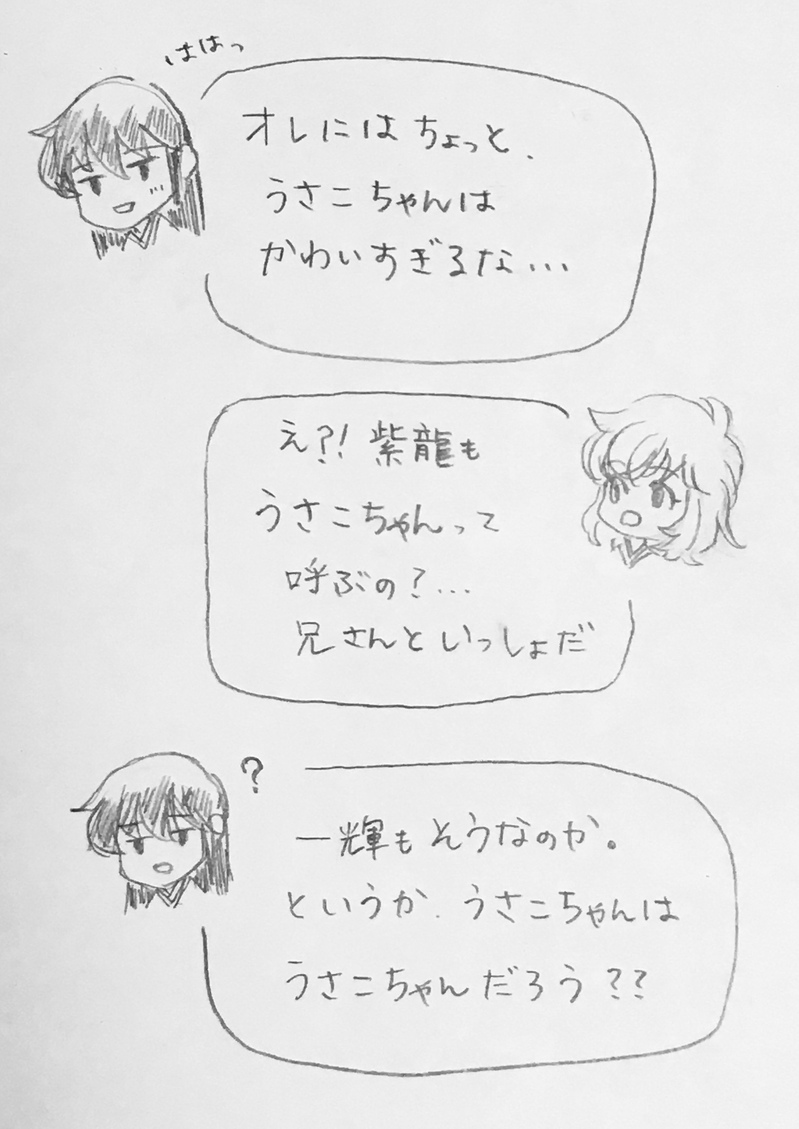 ははっ
オレにはちょっと、
うさこちゃんは
かわいすぎるな…
え?! 紫龍も
うさこちゃんって
呼ぶの?…
兄さんといっしょだ
?
一輝もそうなのか。
というか、うさこちゃんは
うさこちゃんだろう??